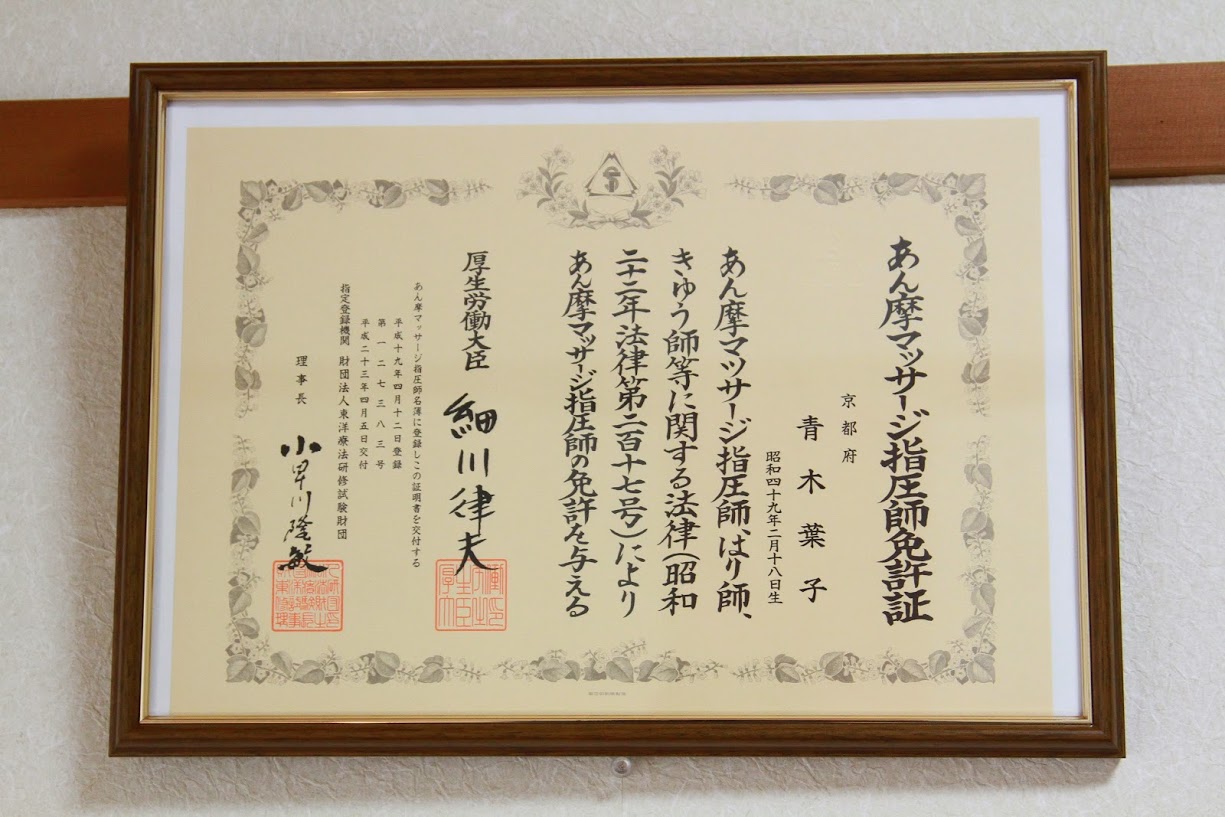 あん摩マッサージ指圧師免許証
京都府
青木葉子
昭和四十九年二月十八日生
あん摩マツサージ指圧師、はり師、
きゆう師等に関する法律(昭和
二十二年法律第二百十七号)により
あん摩マッサージ指圧師の免許を与える
厚生労働大臣 細川律夫
あん摩マッサージ指圧師名簿に登録しこの証明書を交付する
平成十九年四月十二日登録
第一二七三八三号
平成二十三年四月五日交付
指定登録機関 財団法人東洋療法研修試験財団
理事長 小早川隆敏